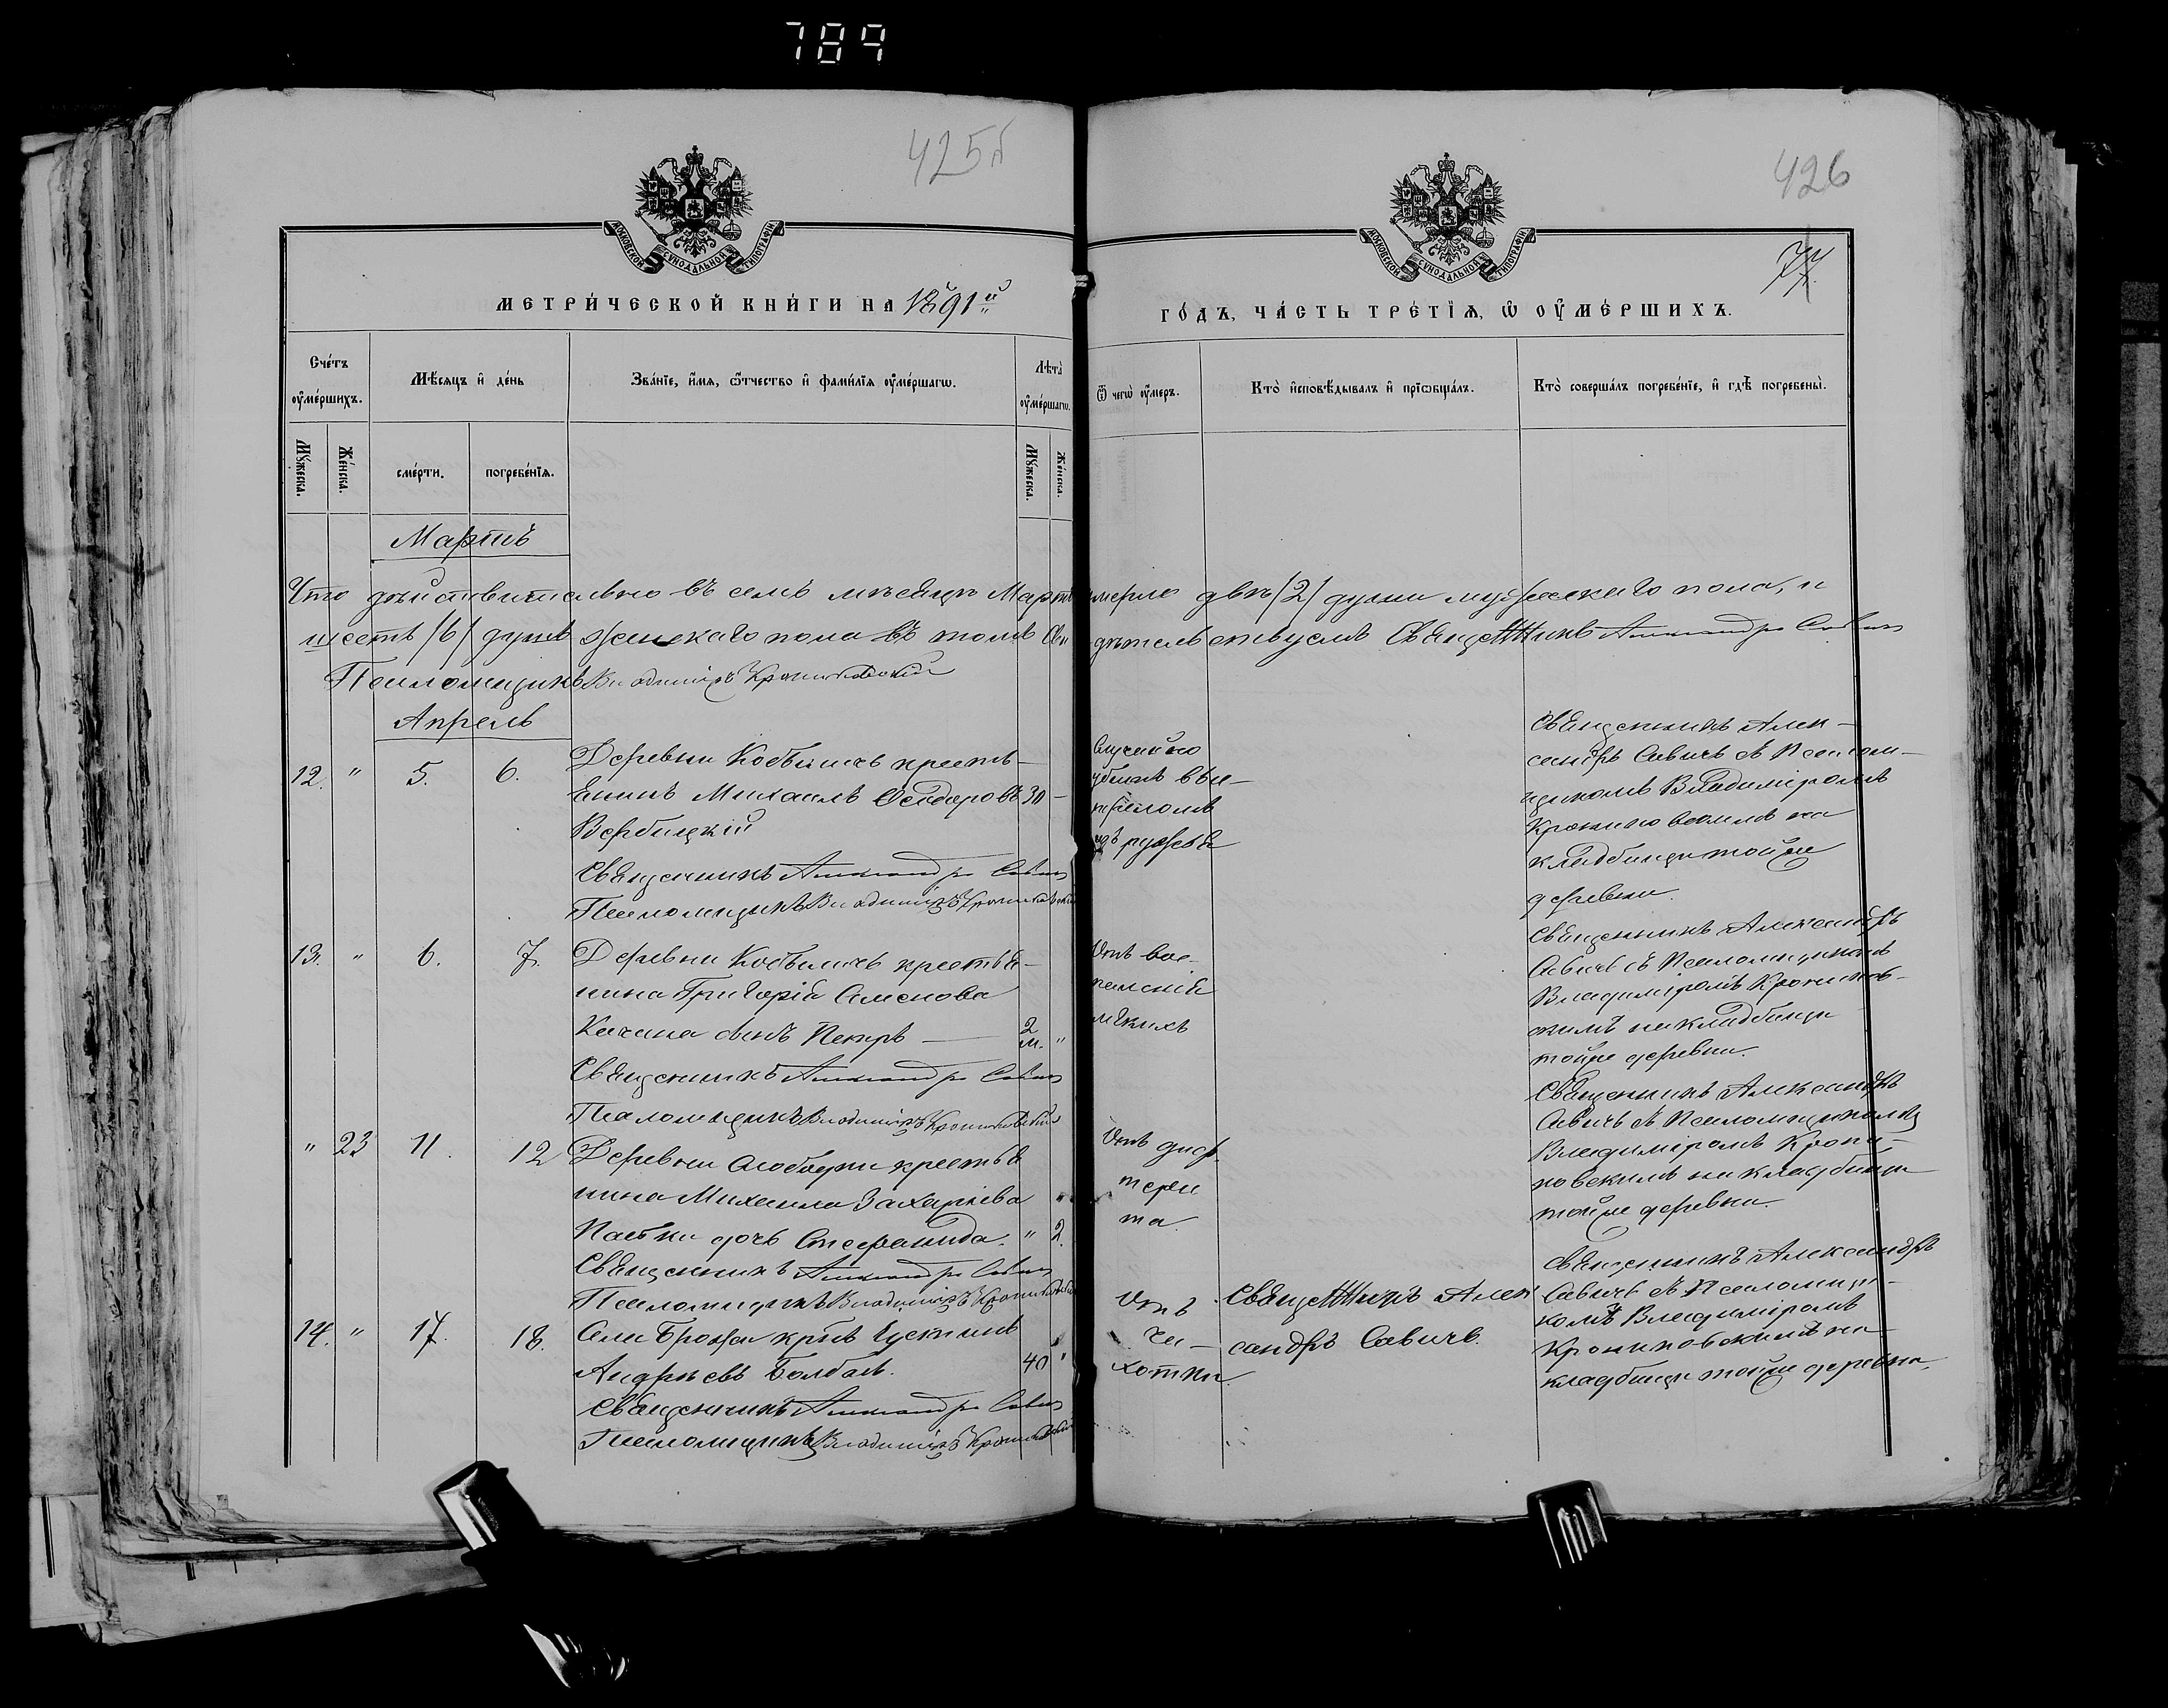 789
425б
426
77
МОСКОВСКОЙ СУНОДАЛЬНОЙ ТИПОГРАФІИ
МОСКОВСКОЙ СУНОДАЛЬНОЙ ТИПОГРАФІИ
МЕТРИ́ЧЕСКОЙ КНИ́ГИ НА 1891й
ГО́ДЪ, ЧА́СТЬ ТРЕ́ТЇѦ, Ѡ ОУ҆МЕ́РШИХЪ.
Сче́тъ оу҆ме́ршихъ.
Мѣ́сяцъ и҆ де́нь
Зва́нїе, и҆́мѧ, ѻ҆́тчество и҆ фами́лїѧ оу҆ме́ршагѡ.
Лѣ́та оу҆ме́ршагѡ.
Ѿ чегѡ̀ оу҆́меръ.
Кто̀ и҆сповѣ́дывалъ и҆ прїѡбща́лъ.
Кто̀ соверша́лъ погребе́нїе, и҆ гдѣ̀ погребены̀.
Мꙋ́жеска.
Же́нска.
сме́рти.
погребе́нїѧ.
Мꙋ́жеска.
Же́нска.
Мартъ
Что дѣйствительно въ семъ мѣсяцѣ Мартѣ умерло двѣ /2/ души мужескаго пола, и
шесть /6/ душъ женскаго пола въ томъ свидѣтельствуемъ Священникъ Александръ Савичъ
Псаломщикъ Владиміръ Крониковскій
Апрель
12. " 5. 6.
Деревни Кобыличъ кресть-
янинъ Михаилъ Ѳеодоровъ 30 -
Вербицкій
Священникъ Александръ Савичъ
Псаломщикъ Владиміръ Крониковскій
Случайно
убитъ вы-
стреломъ
изъ ружья
Священникъ Алек-
сандръ Савичъ съ Псалом-
щикомъ Владиміромъ
Крониковскимъ на
кладбищи тойже
деревни.
13. " 6. 7.
Деревни Кобыличъ крестья-
нина Григорія Семенова
Качана сынъ Петръ — 2 м. "
Священникъ Александръ Савичъ
Псаломщикъ Владиміръ Крониковскій
Отъ вос-
паленія
легкихъ
Священникъ Александръ
Савичъ съ Псаломщикомъ
Владиміромъ Кроников-
скимъ на кладбищи
тойже деревни.
" 23 11. 12
Деревни Слободки крестья
нина Михаила Захаріева
дочь Стефанида. " 2.
Священникъ Александръ Савичъ
Псаломщикъ Владиміръ Крониковскій
Отъ диф-
тери
та.
Священникъ Александръ
Савичъ съ Псаломщикомъ
Владиміромъ Крони-
ковскимъ на кладбищи
тойже деревни.
14. " 17. 18.
Села Брожи кр-нъ Іустинъ
Андреевъ Болбасъ. 40 "
Священникъ Александръ Савичъ
Псаломщикъ Владиміръ Крониковскій
Отъ
ча-
хотки.
Священникъ Алек
сандръ Савичъ.
Священникъ Александръ
Савичъ съ Псаломщи-
комъ Владиміромъ
Крониковскимъ на
кладбищи тойже деревни.